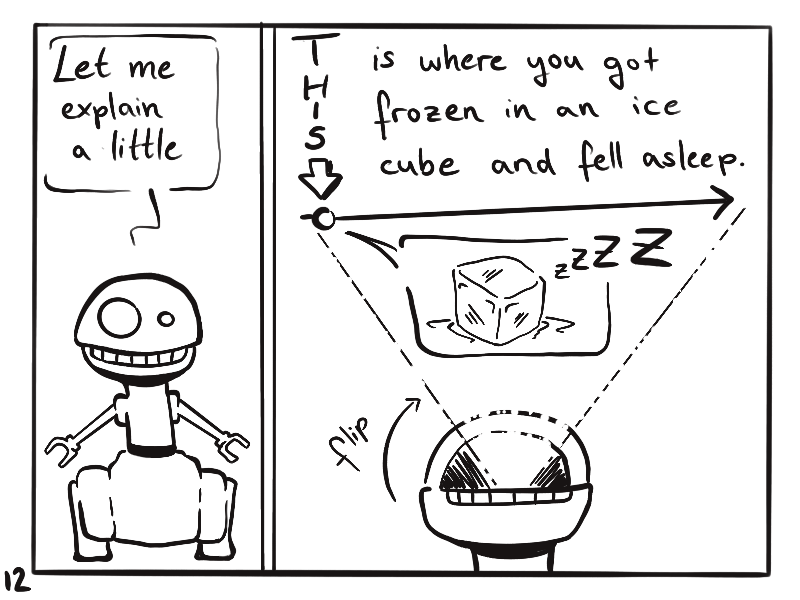 Let me
explain
a little
THIS
is where you got
frozen in an ice
cube and fell asleep.
zzZZ
flip
12